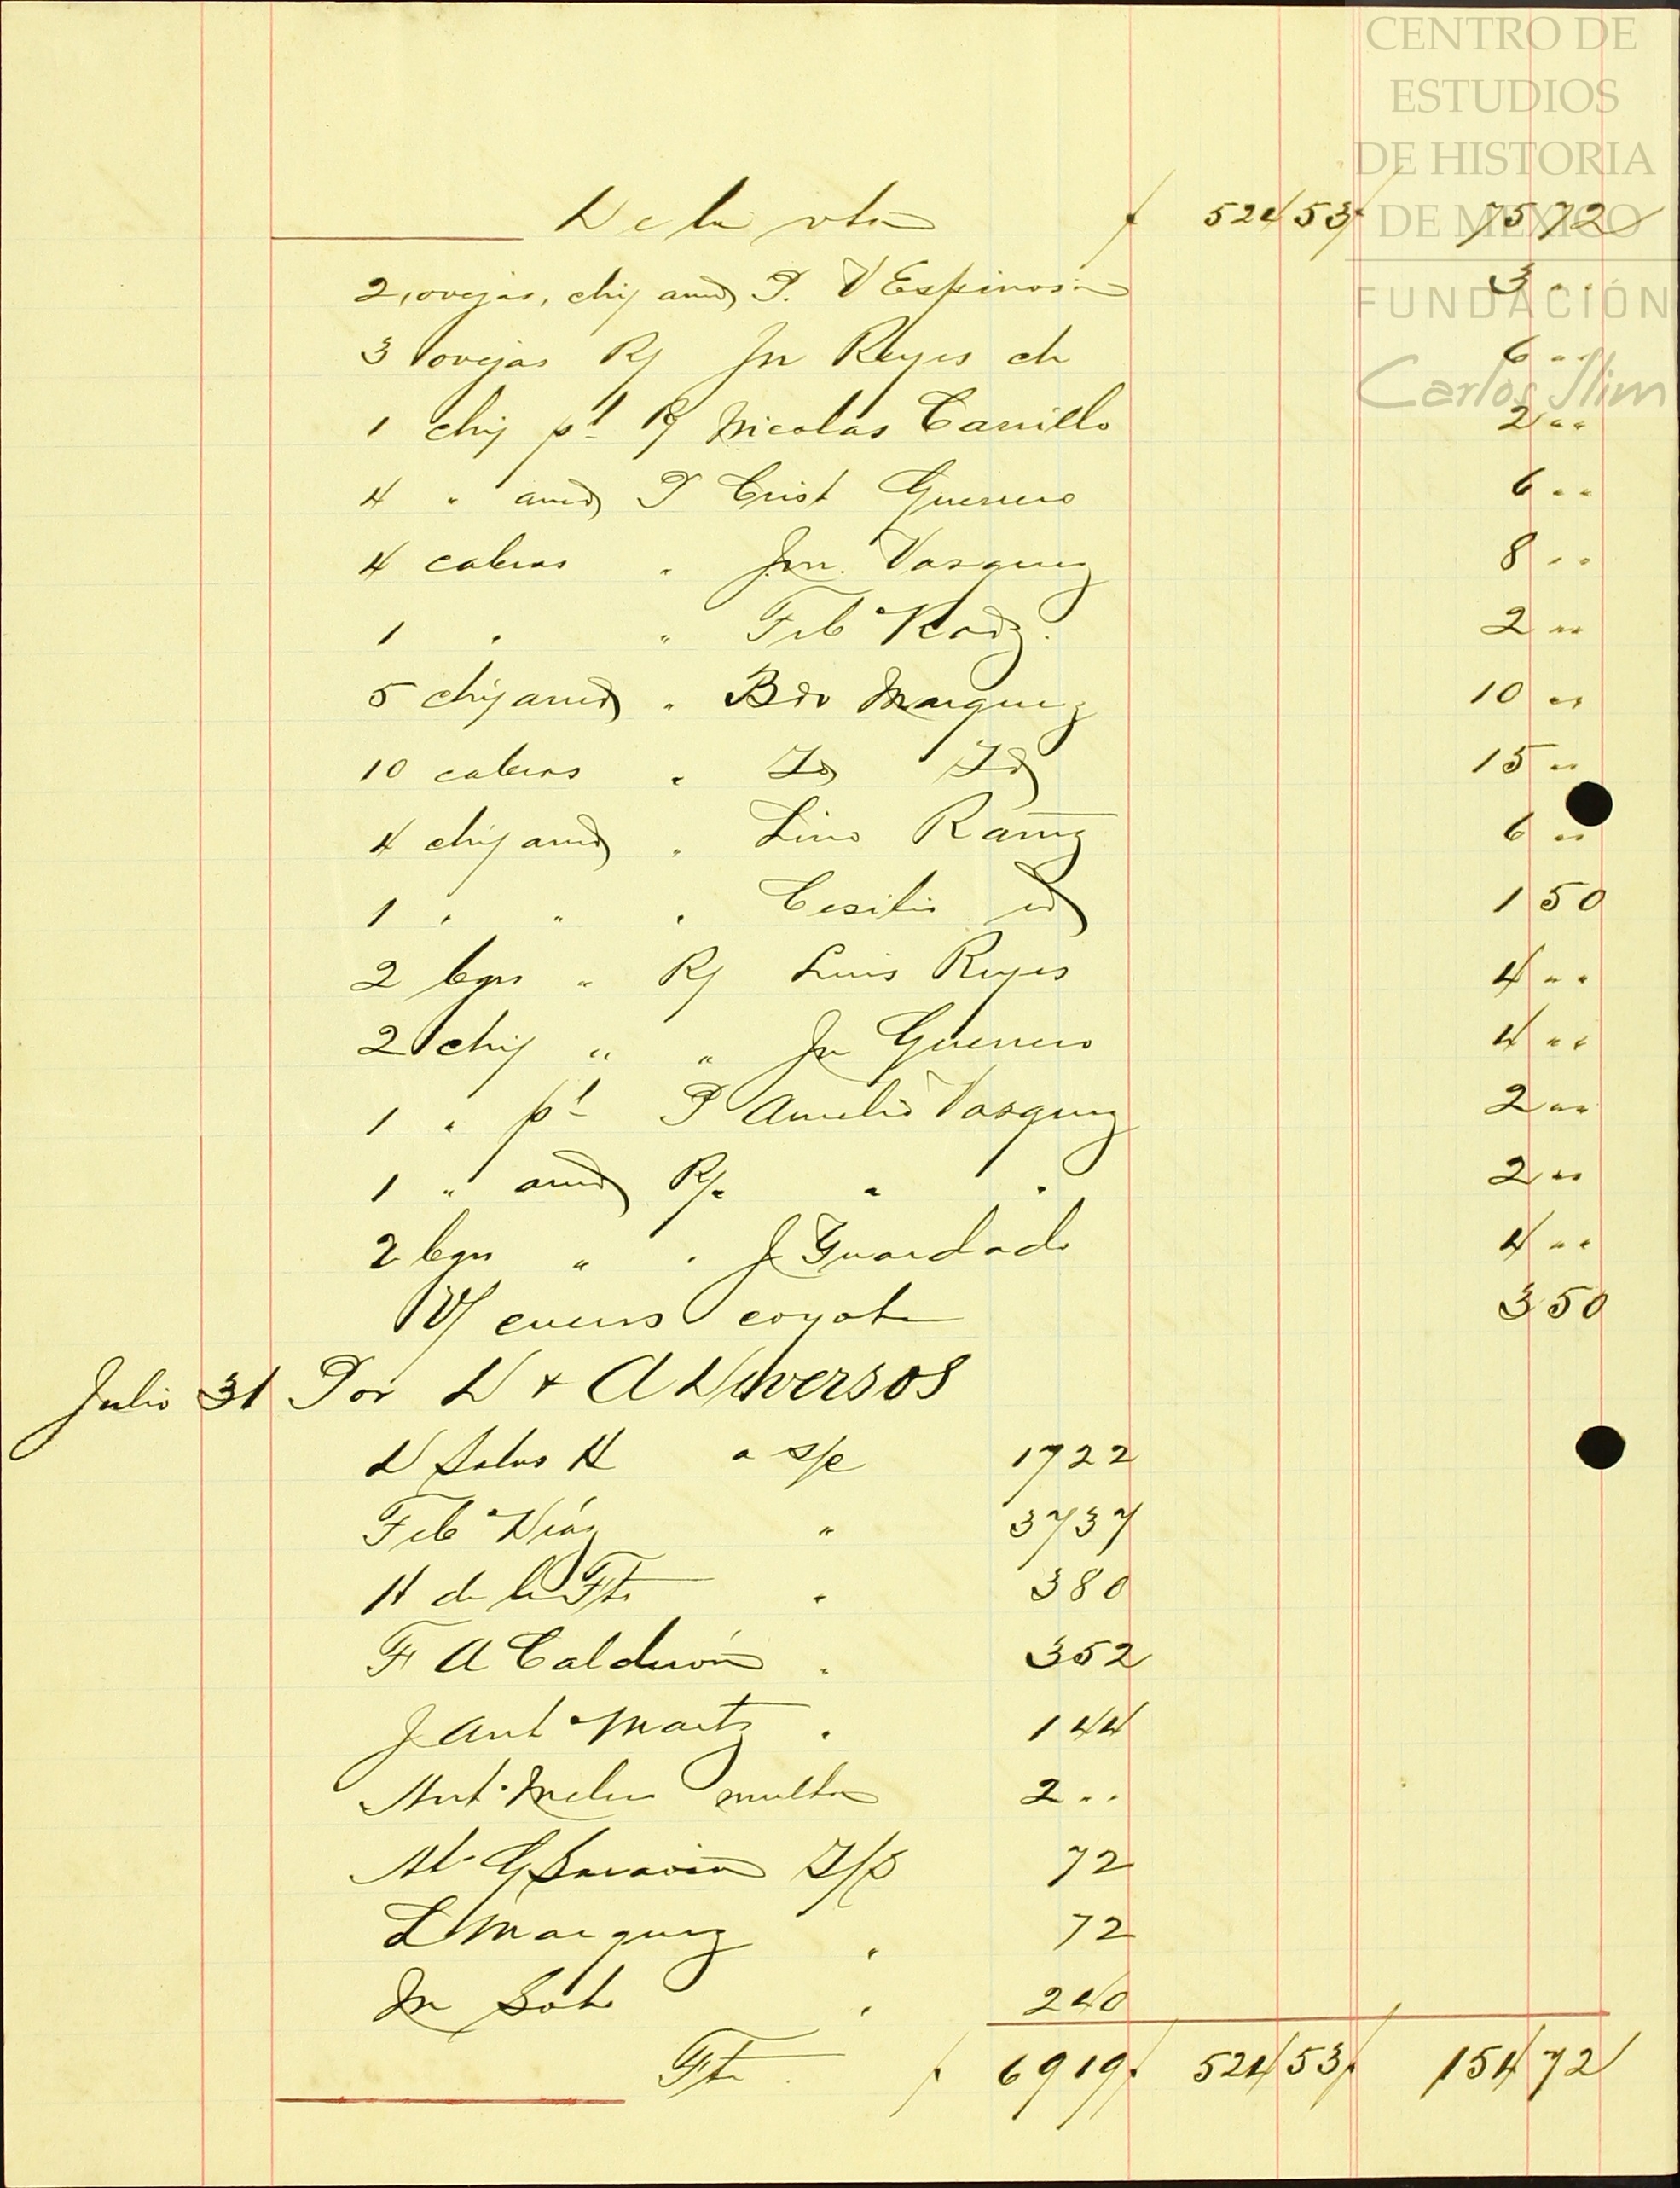 CENTRO DE
ESTUDIOS
DE HISTORIA
DE MÉXICO
FUNDACIÓN
Carlos Slim
De la vta $ 524 53 $ 75 72
2 ovejas, chij amd P. V Espinosa 3 " "
3 ovejas R/ Jn Reyes ch 6 " "
1 chij pl R/ Nicolas Carrillo 2 " "
4 " amd P Crist Guerrero 6 " "
4 cabras " Jn. Vasquez 8 " "
1 " " Feb° Rodz. 2 " "
5 chij amd " Bdo Marquez 10 " "
10 cabras " Id Id 15 " "
4 chij amd " Lino Ramz 6 " "
1 " " " Cesilio id 1 50
2 bgos " R/ Luis Reyes 4 " "
2 chij " " Jn Guerrero 4 " "
1 " pl P Aurelio Vasquez 2 " "
1 " amd R/ " " 2 " "
2 bgos " " J Guardado 4 " "
V/ cueros coyote 3 50
Julio 31 Por D & A Diversos
D Salas H a s/c 17 22
Feb° Diáz " 37 37
H de la Fte " 3 80
F A Calderón " 3 52
J Ant° Martz " 1 44
Ant° multa 2 " "
Ab° G 72
L Marquez " 72
Jn Soto " 2 40
Fte $ 69 19 $ 524 53 $ 154 72